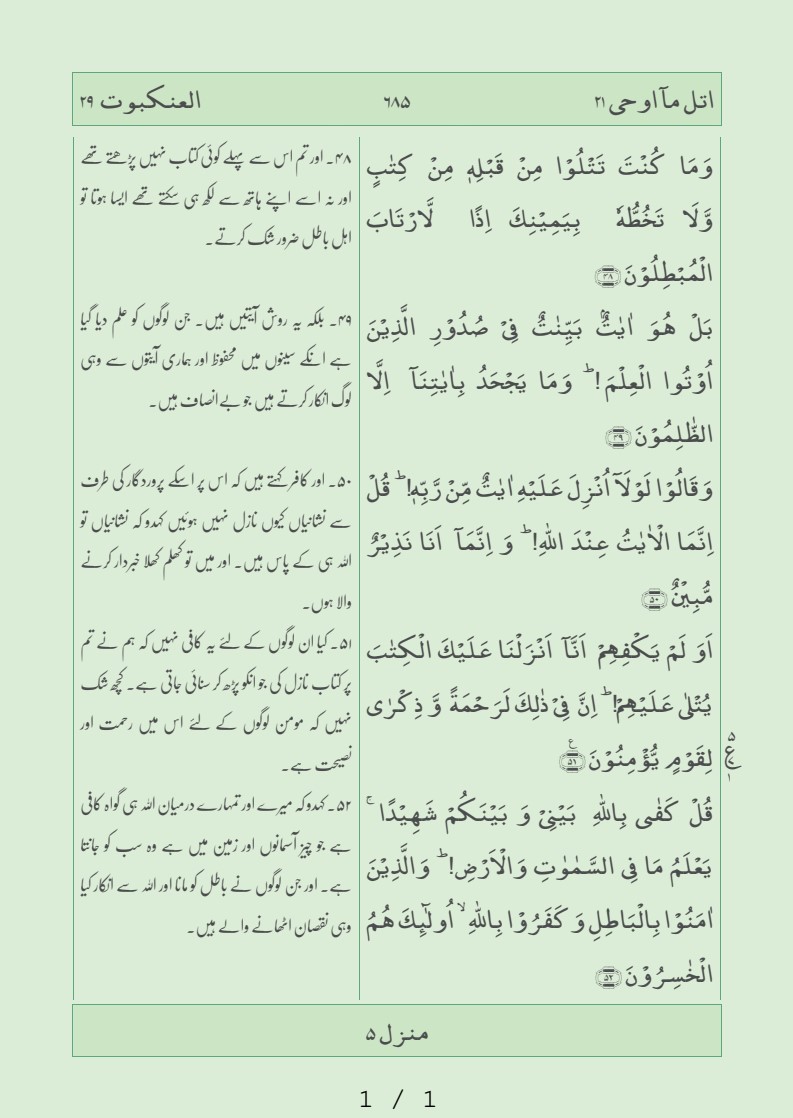 اتل مآ اوحی ۲۱
۶۸۵
العنکبوت ۲۹
وَمَا كُنْتَ تَتْلُوْا مِنْ قَبْلِهٖ مِنْ كِتٰبٍ
وَّلَا تَخُطُّهٗ بِيَمِيْنِكَ اِذًا لَّارْتَابَ
الْمُبْطِلُوْنَ ﴿۴۸﴾
بَلْ هُوَ اٰيٰتٌۢ بَيِّنٰتٌ فِىْ صُدُوْرِ الَّذِيْنَ
اُوْتُوا الْعِلْمَ!ؕ وَمَا يَجْحَدُ بِاٰيٰتِنَاۤ اِلَّا
الظّٰلِمُوْنَ ﴿۴۹﴾
وَقَالُوْا لَوْلَاۤ اُنْزِلَ عَلَيْهِ اٰيٰتٌ مِّنْ رَّبِّهٖ!ؕ قُلْ
اِنَّمَا الْاٰيٰتُ عِنْدَ اللّٰهِ!ؕ وَ اِنَّمَاۤ اَنَا نَذِيْرٌ
مُّبِيْنٌ ﴿۵۰﴾
اَوَ لَمْ يَكْفِهِمْ اَنَّاۤ اَنْزَلْنَا عَلَيْكَ الْكِتٰبَ
يُتْلٰى عَلَيْهِمْ!ؕ اِنَّ فِىْ ذٰلِكَ لَرَحْمَةً وَّ ذِكْرٰى
لِقَوْمٍ يُّؤْمِنُوْنَ ﴿۵۱﴾ع
قُلْ كَفٰى بِاللّٰهِ بَيْنِىْ وَ بَيْنَكُمْ شَهِيْدًا ۚ
يَعْلَمُ مَا فِى السَّمٰوٰتِ وَالْاَرْضِ!ؕ وَالَّذِيْنَ
اٰمَنُوْا بِالْبَاطِلِ وَ كَفَرُوْا بِاللّٰهِ ۙ اُولٰٓئِكَ هُمُ
الْخٰسِرُوْنَ ﴿۵۲﴾
۴۸۔ اور تم اس سے پہلے کوئی کتاب نہیں پڑھتے تھے
اور نہ اسے اپنے ہاتھ سے لکھ ہی سکتے تھے ایسا ہوتا تو
اہل باطل ضرور شک کرتے۔
۴۹۔ بلکہ یہ روشن آیتیں ہیں۔ جن لوگوں کو علم دیا گیا
ہے انکے سینوں میں محفوظ اور ہماری آیتوں سے وہی
لوگ انکار کرتے ہیں جو بے انصاف ہیں۔
۵۰۔ اور کافر کہتے ہیں کہ اس پر اسکے پروردگار کی طرف
سے نشانیاں کیوں نازل نہیں ہوئیں کہدو کہ نشانیاں تو
اللہ ہی کے پاس ہیں۔ اور میں تو کھلم کھلا خبردار کرنے
والا ہوں۔
۵۱۔ کیا ان لوگوں کے لئے یہ کافی نہیں کہ ہم نے تم
پر کتاب نازل کی جو انکو پڑھ کر سنائی جاتی ہے۔ کچھ شک
نہیں کہ مومن لوگوں کے لئے اس میں رحمت اور
نصیحت ہے۔
۵۲۔ کہدو کہ میرے اور تمہارے درمیان اللہ ہی گواہ کافی
ہے جو چیز آسمانوں اور زمین میں ہے وہ سب کو جانتا
ہے۔ اور جن لوگوں نے باطل کو مانا اور اللہ سے انکار کیا
وہی نقصان اٹھانے والے ہیں۔
منزل ۵
1 / 1